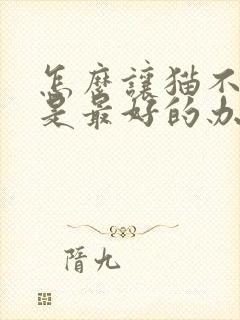 怎麼讓猫不
是最好的办
隋九